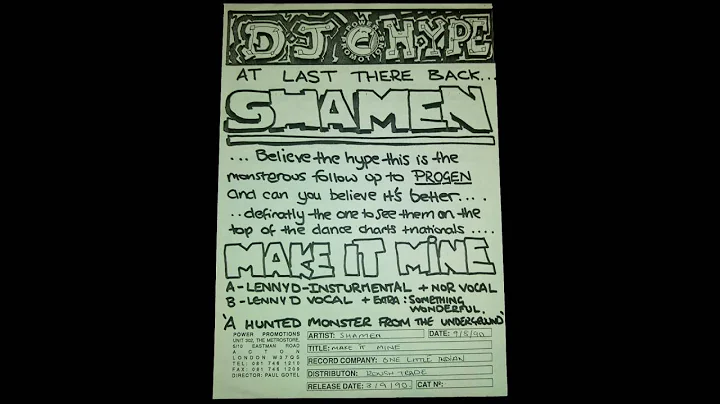 DJ HYPE
POWER PROMOTIONS
AT LAST THERE BACK...
SHAMEN
... Believe the hype this is the
monsterous follow up to PROGEN
and can you believe it's better....
..definatly the one to see them on the
top of the dance charts + nationals ....
MAKE IT MINE
A - LENNY D - INSTURMENTAL + NOR VOCAL
B - LENNY D VOCAL + EXTRA: SOMETHING WONDERFUL.
'A HUNTED MONSTER FROM THE UNDERGROUND'
POWER PROMOTIONS
UNIT 302, THE METROSTORE,
5/10 EASTMAN ROAD
ACTON
LONDON W37QS
TEL: 081 746 1210
FAX: 081 746 1209
DIRECTOR: PAUL GOTEL
ARTIST: SHAMEN DATE: 9/8/90
TITLE: MAKE IT MINE
RECORD COMPANY: ONE LITTLE INDIAN
DISTRIBUTON: ROUGH TRADE
RELEASE DATE: 3/9/90. CAT Nº: